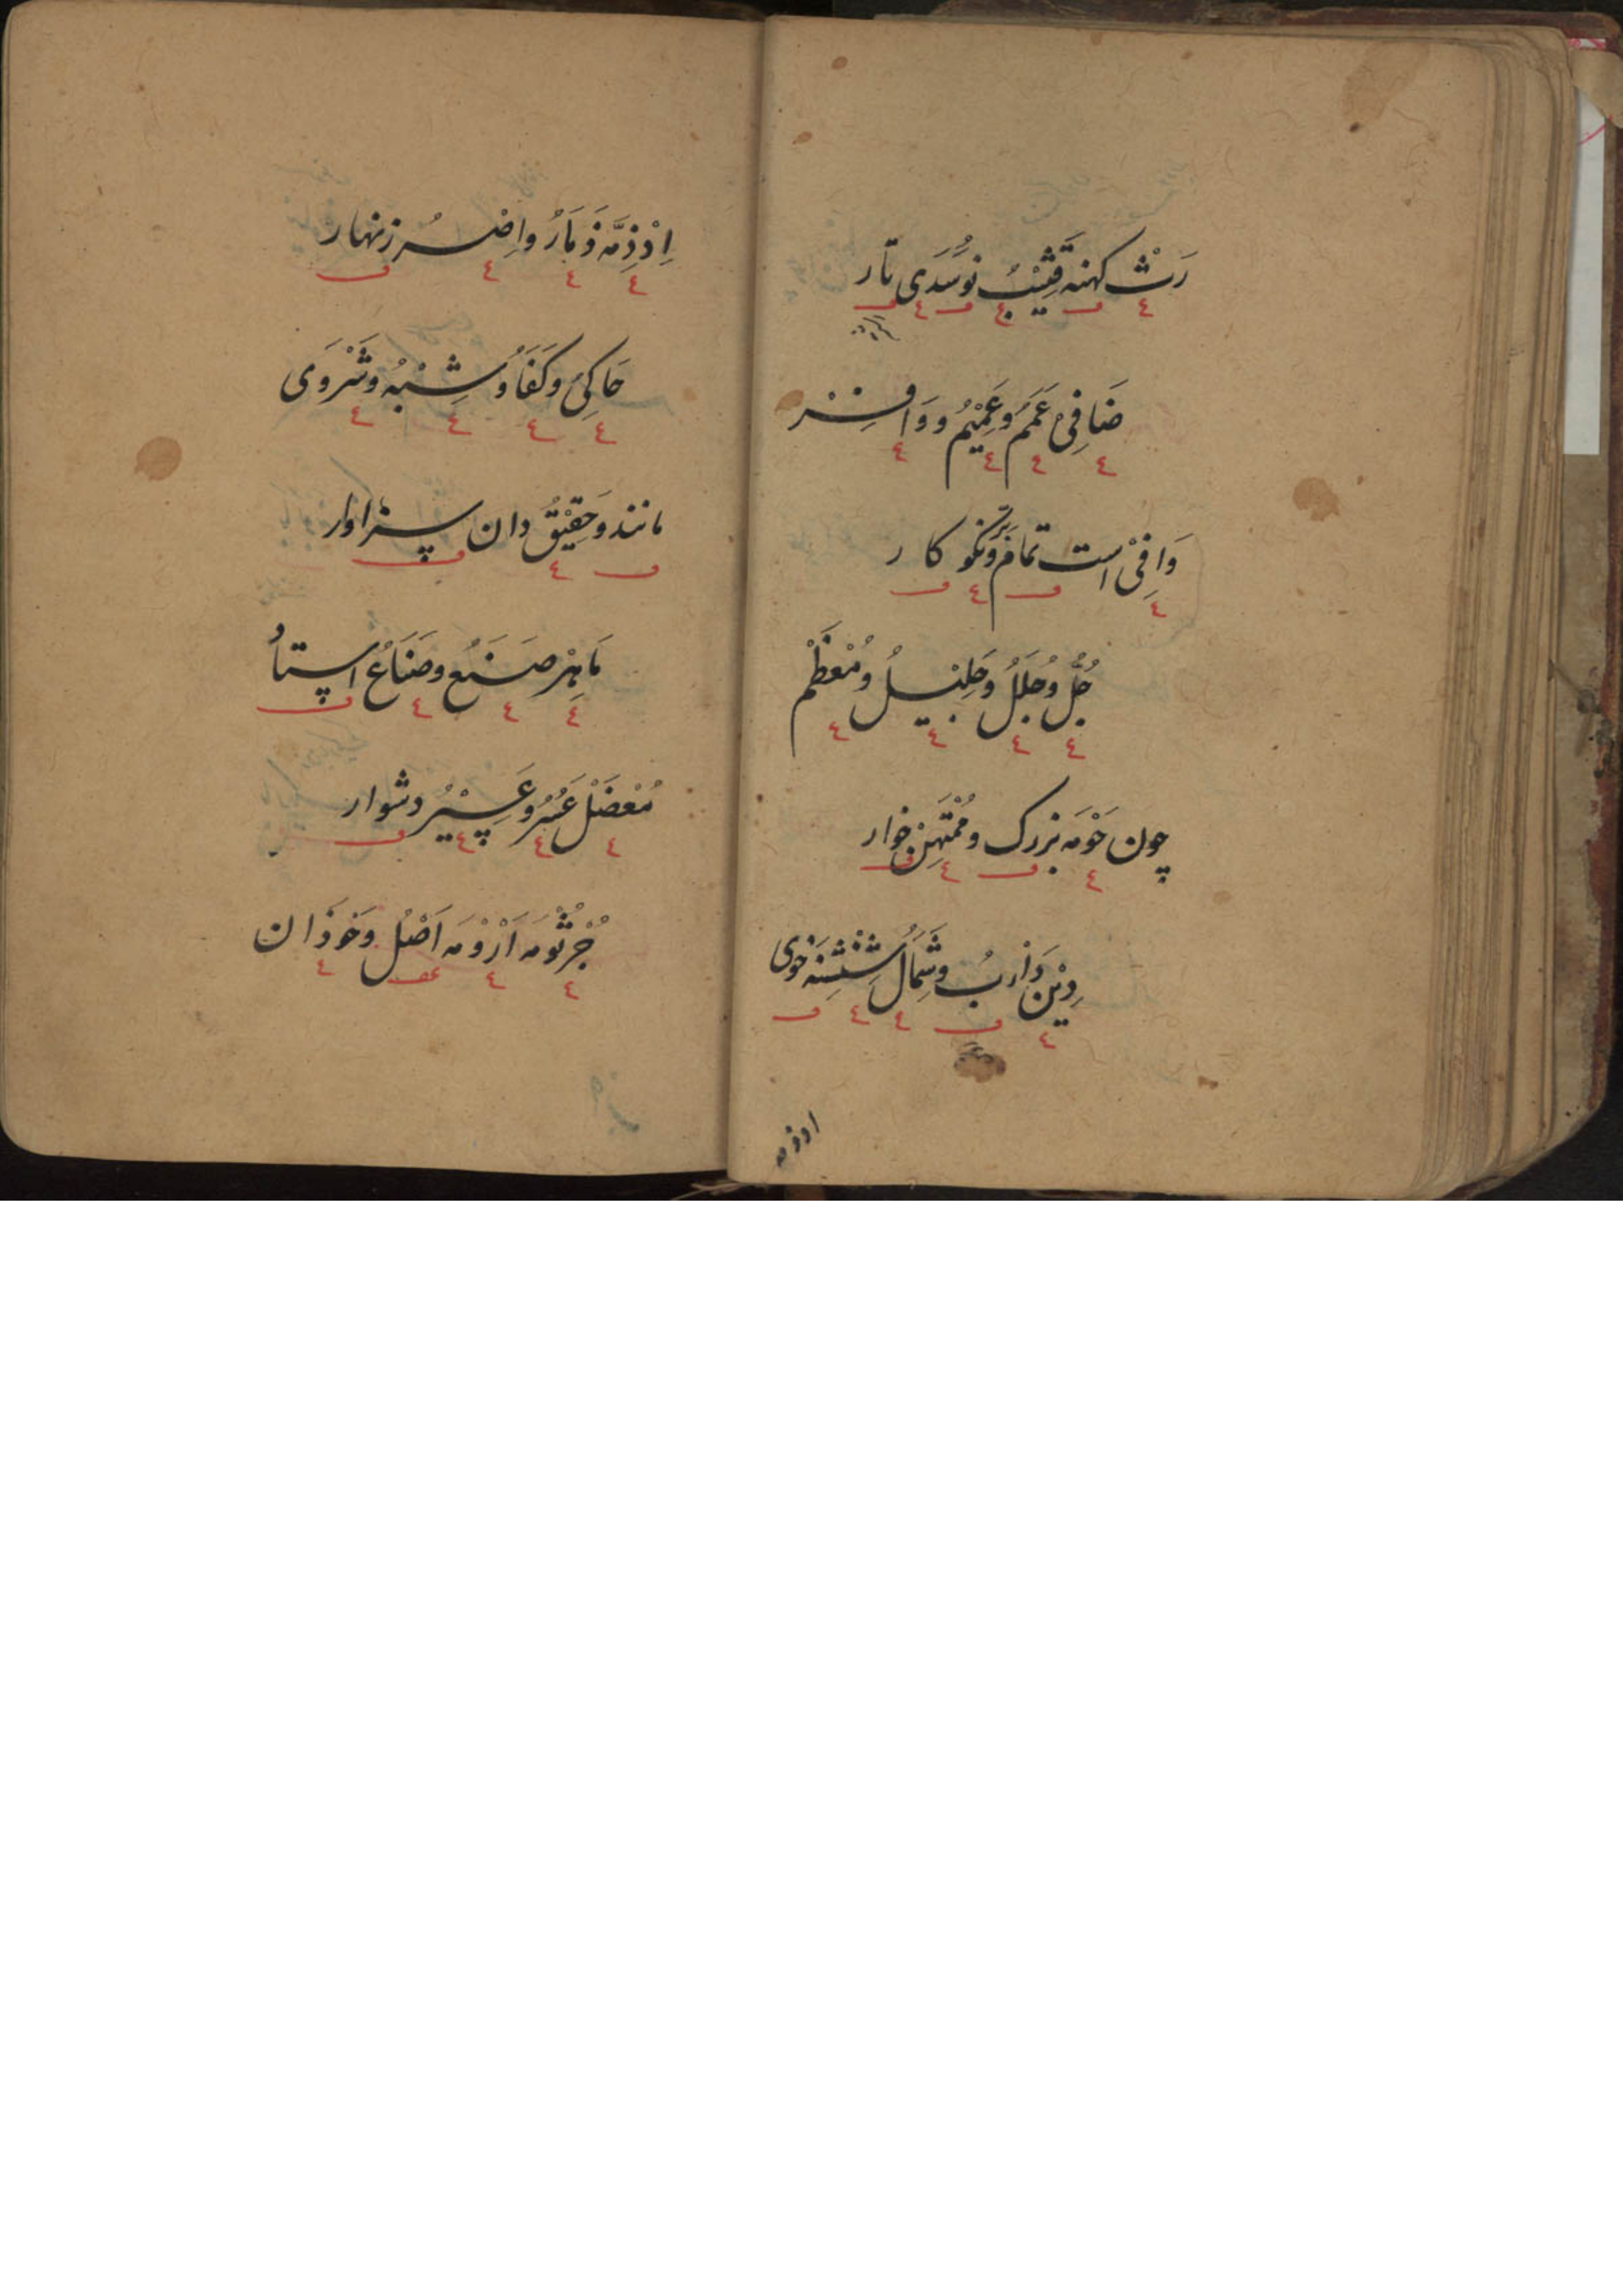 رَثْ کهنه قَشِیْبُ نو سُدَی تار
ضَافِیْ عَمَمُ وعَمِیْمُ ووَافِرْ
وَافِیْ است تمام وبَرّ نکوکار
جُلُّ وجُلَلُ وجَلِیْلُ ومُعْظَمْ
چون حَوْمَه بزرک ومُمْتَهَنْ خوار
دِیْن دَاْبُ وشِمَالُ شِنْشِنَه خوی
اِذْ ذِمَّه ذِمَارُ واِصْرُ زنهار
حَاکِیْ وکَفَاُ وشِبْهُ وشَرْوَی
مانند وحَقِیْقُ دان سزاوار
مَاهِرْ صَنَعُ وصَنَاعُ استاد
مُعْضَلْ عَسُرُ وعَسِیْرُ دشوار
جُرْثُوْمَه اَرُوْمَه اَصْلُ وخوذان